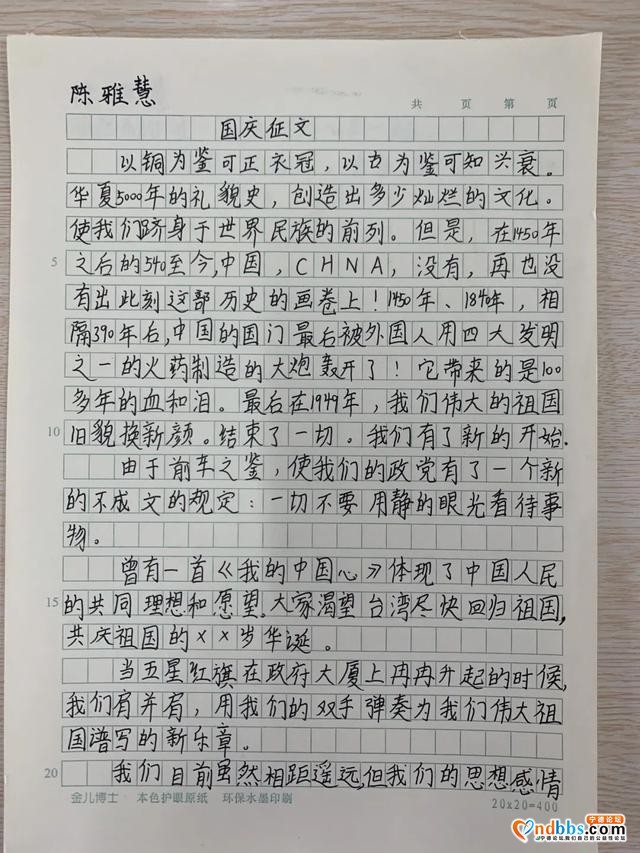 陈雅慧
共 页 第 页
国庆征文
以铜为鉴可正衣冠，以古为鉴可知兴衰。
华夏5000年的礼貌史，创造出多少灿烂的文化。
使我们跻身于世界民族的前列。但是，在1450年
5 之后的540至今,中国，CHNA，没有，再也没
有出此刻这部历史的画卷上！1450年、1840年，相
隔390年后,中国的国门最后被外国人用四大发明
之一的火药制造的大炮轰开了！它带来的是100
多年的血和泪。最后在1949年，我们伟大的祖国
10 旧貌换新颜。结束了一切。我们有了新的开始.
由于前车之鉴，使我们的政党有了一个新
的不成文的规定：一切不要用静的眼光看待事
物。
曾有一首《我的中国心》体现了中国人民
15 的共同理想和愿望.大家渴望台湾尽快回归祖国,
共庆祖国的××岁华诞。
当五星红旗在政府大厦上冉冉升起的时候,
我们肩并肩，用我们的双手弹奏为我们伟大祖
国谱写的新乐章。
20 我们目前虽然相距遥远,但我们的思想感情
金儿博士 本色护眼原纸 环保水墨印刷 20×20=400
宁德论坛
ndbbs.com
宁德论坛/我们自己的公益性论坛